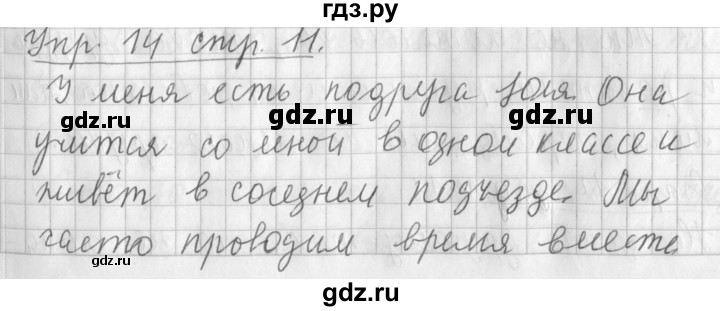 гдз.ру
Упр. 14 стр. 11.
У меня есть подруга Юля. Она
gdz.ru gdz.ru
учится со мной в одной классе и
живёт в соседнем подъезде. Мы
часто проводим время вместе.
gdz.ru gdz.ru
gdz.ru